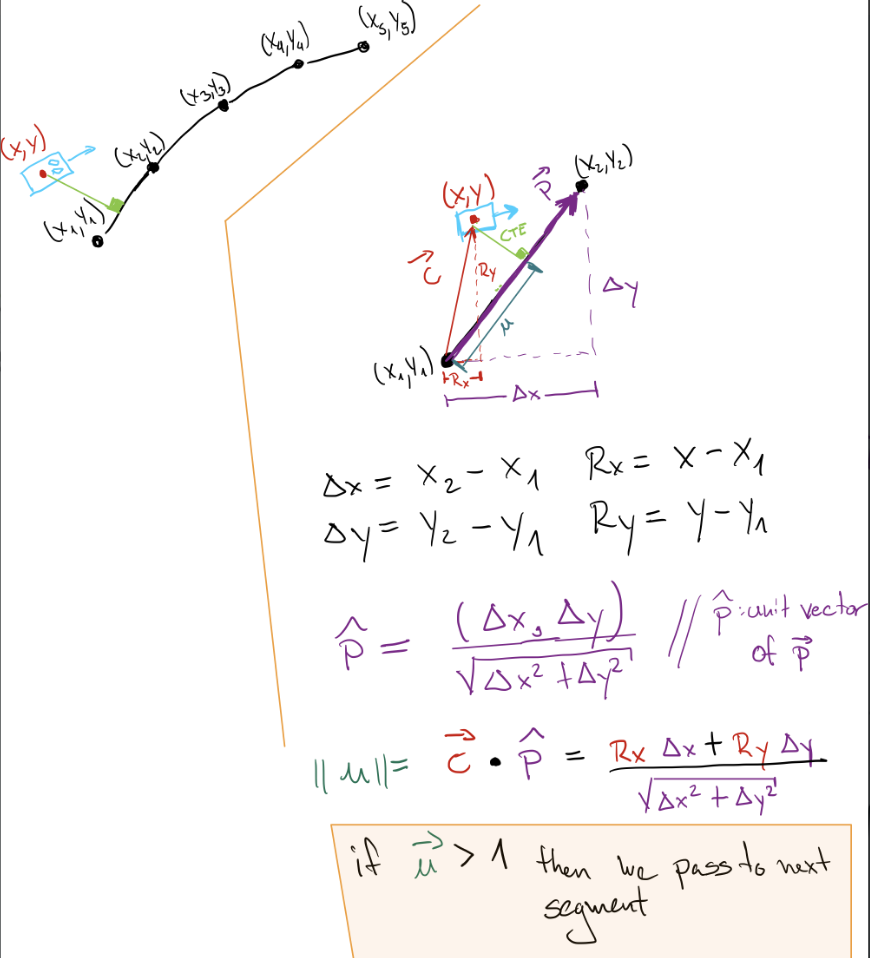 (x5,y5)
(x4,y4)
(x3,y3)
(x,y)
(x2,y2)
(x1,y1)
(x2,y2)
P⃗
(x,y)
CTE
C⃗
Ry
Δy
μ
(x1,y1)
Rx
Δx
Δx = x2 − x1   Rx = x − x1
Δy = y2 − y1   Ry = y − y1
P̂ = (Δx, Δy) / √(Δx² + Δy²)   // P̂: unit vector
of P⃗
||μ|| = C⃗ • P̂ = (Rx Δx + Ry Δy) / √(Δx² + Δy²)
if μ⃗ > 1 then we pass to next
segment